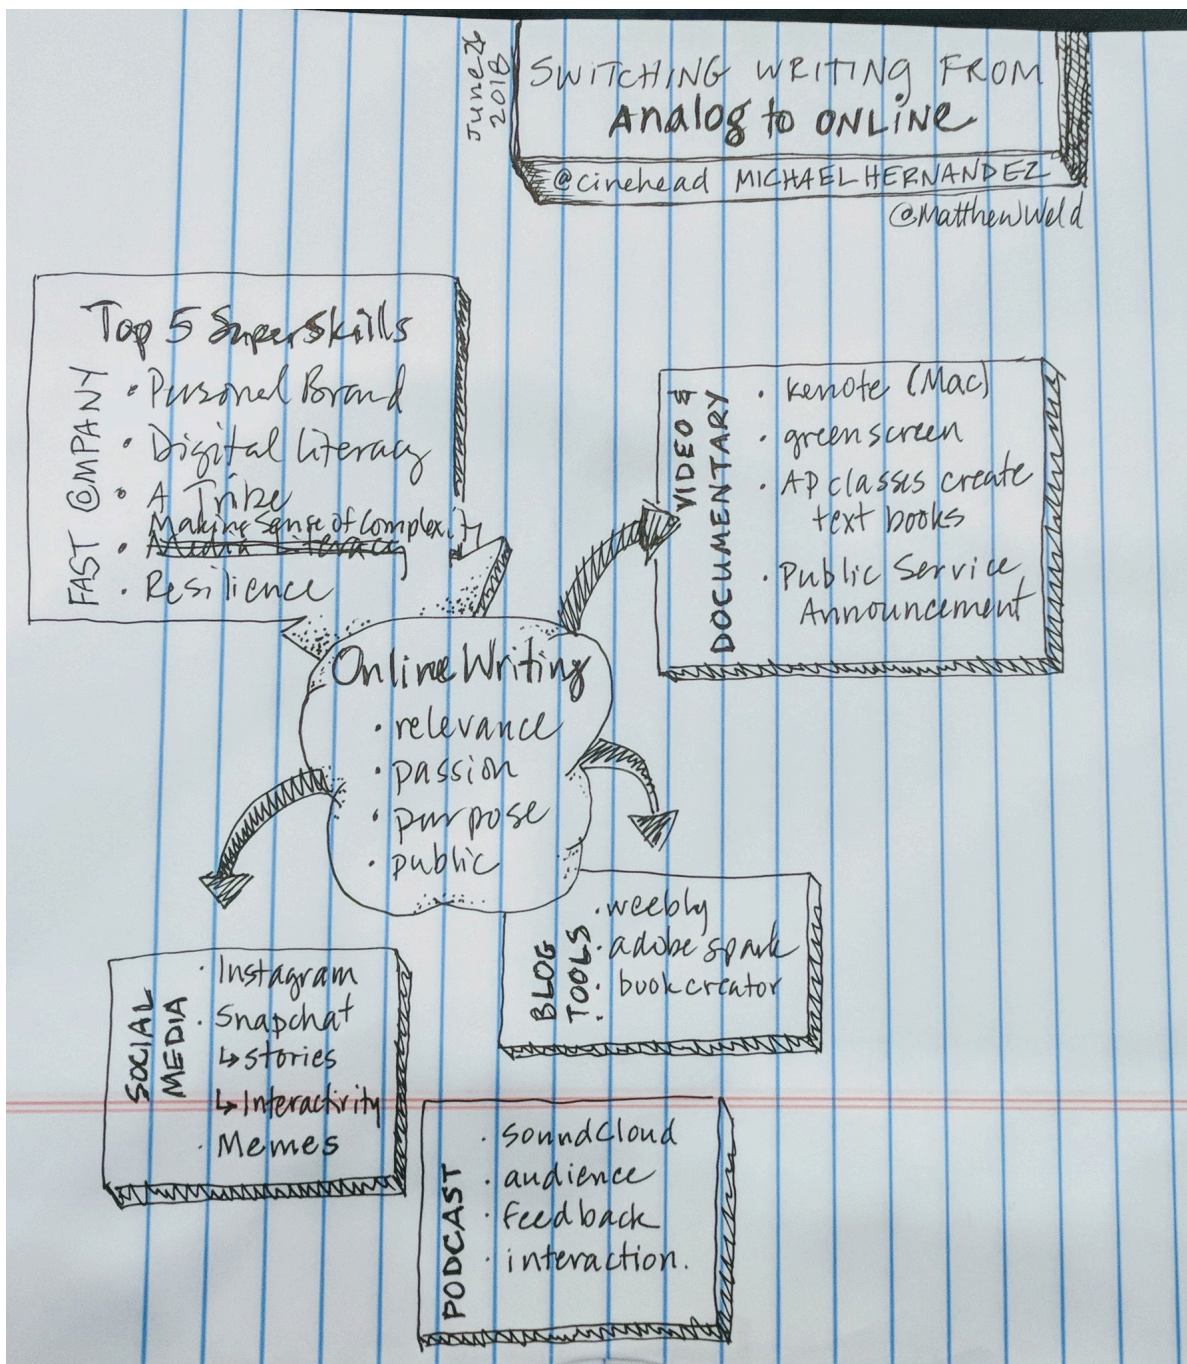 June 26
2018
SWITCHING WRITING FROM
Analog to ONLINE
@cinehead MICHAEL HERNANDEZ
@MatthewWeld
FAST COMPANY
Top 5 SuperSkills
• Personal Brand
• Digital Literacy
• A Tribe
Making Sense of Complexity
• Media Literacy
• Resilience
VIDEO &
DOCUMENTARY
• kenote (Mac)
• greenscreen
• AP classes create
text books
• Public Service
Announcement
Online Writing
• relevance
• passion
• purpose
• public
BLOG
TOOLS
• weebly
• adobe spark
• bookcreator
SOCIAL
MEDIA
• Instagram
• Snapchat
↳ stories
↳ Interactivity
• Memes
PODCAST
• soundCloud
• audience
• feedback
• interaction.